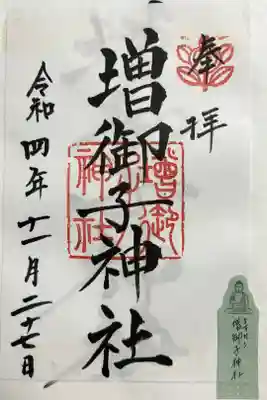 奉拝
増御子神社
令和四年十一月二十七日
增御
神社
増御子神社